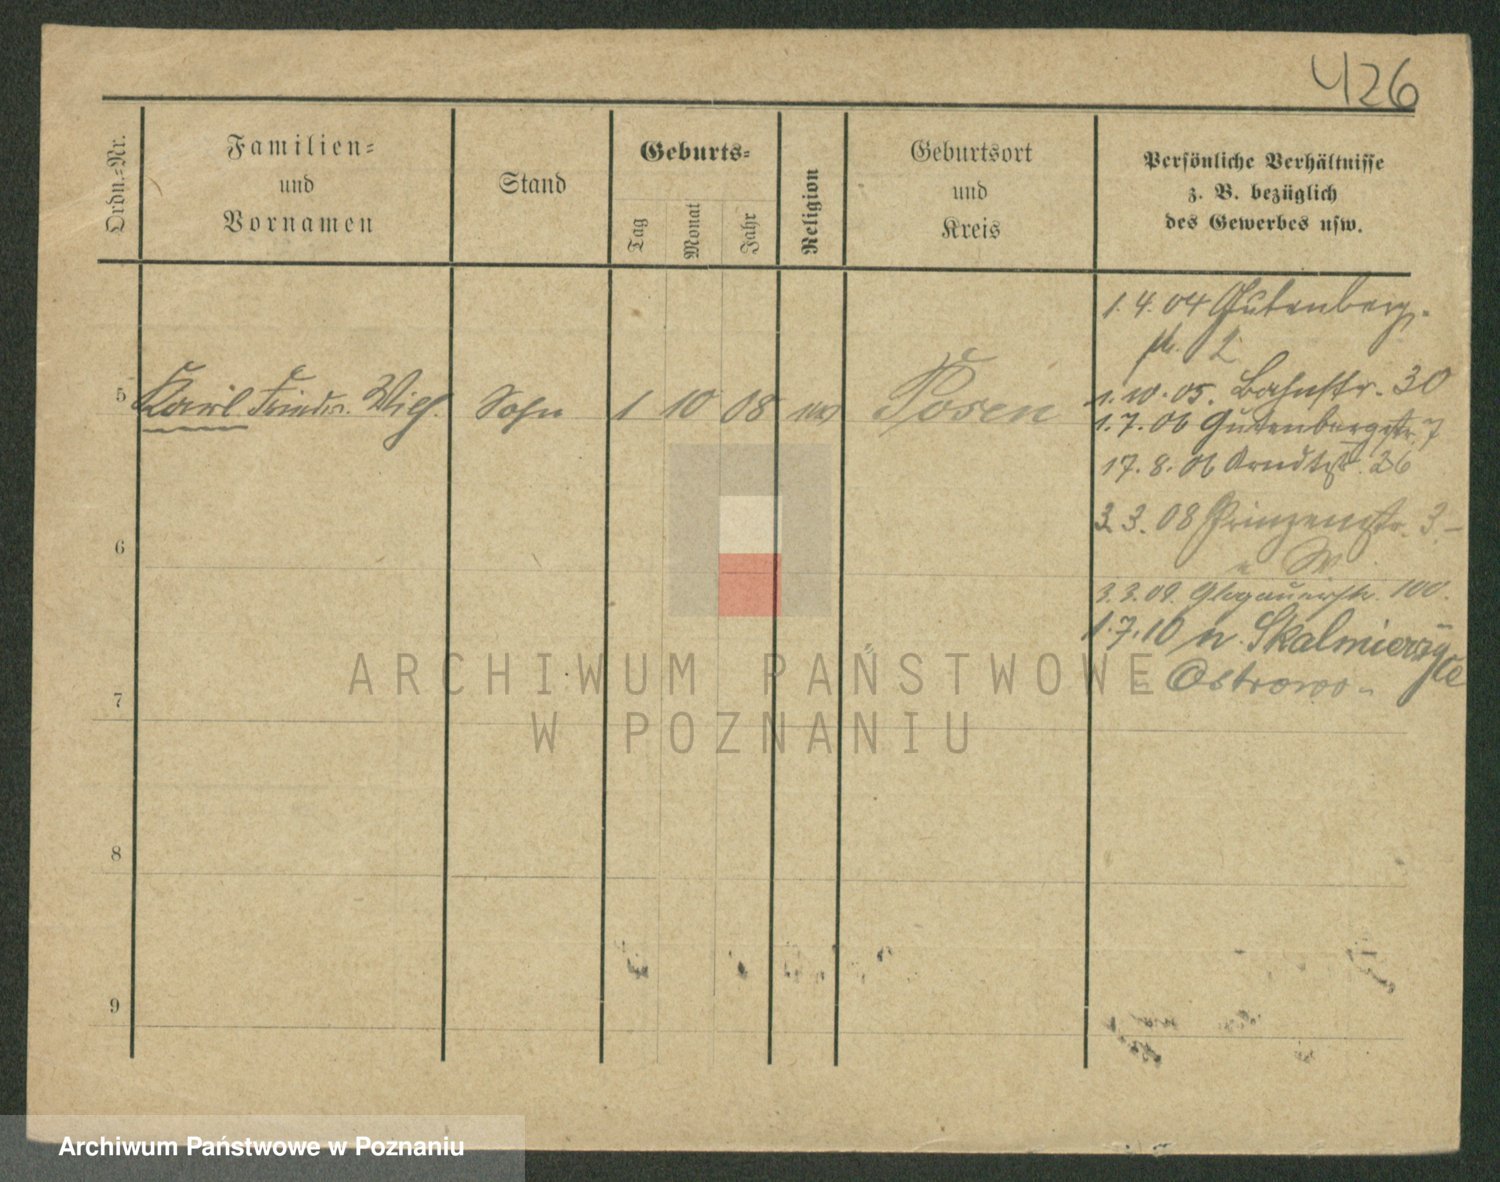 426
Ordn.-Nr.
Familien-
und
Vornamen
Stand
Geburts-
Tag
Monat
Jahr
Religion
Geburtsort
und
Kreis
Persönliche Verhältnisse
z. B. bezüglich
des Gewerbes usw.
1.4.04 Gutenberg.
str. 2
5 Karl Friedr. Wilh. Sohn 1 10 08 Posen
1.10.05. Bahnstr. 30
1.7.06 Gutenbergstr. 7
17.8.06 Arndtstr. 26
3.3.08 Prinzenstr. 3.
6
3.3.09. Glogauerstr. 100.
1.7.10 n. Skalmierzyce
Ostrowo
7
8
9
ARCHIWUM PAŃSTWOWE
W POZNANIU
Archiwum Państwowe w Poznaniu